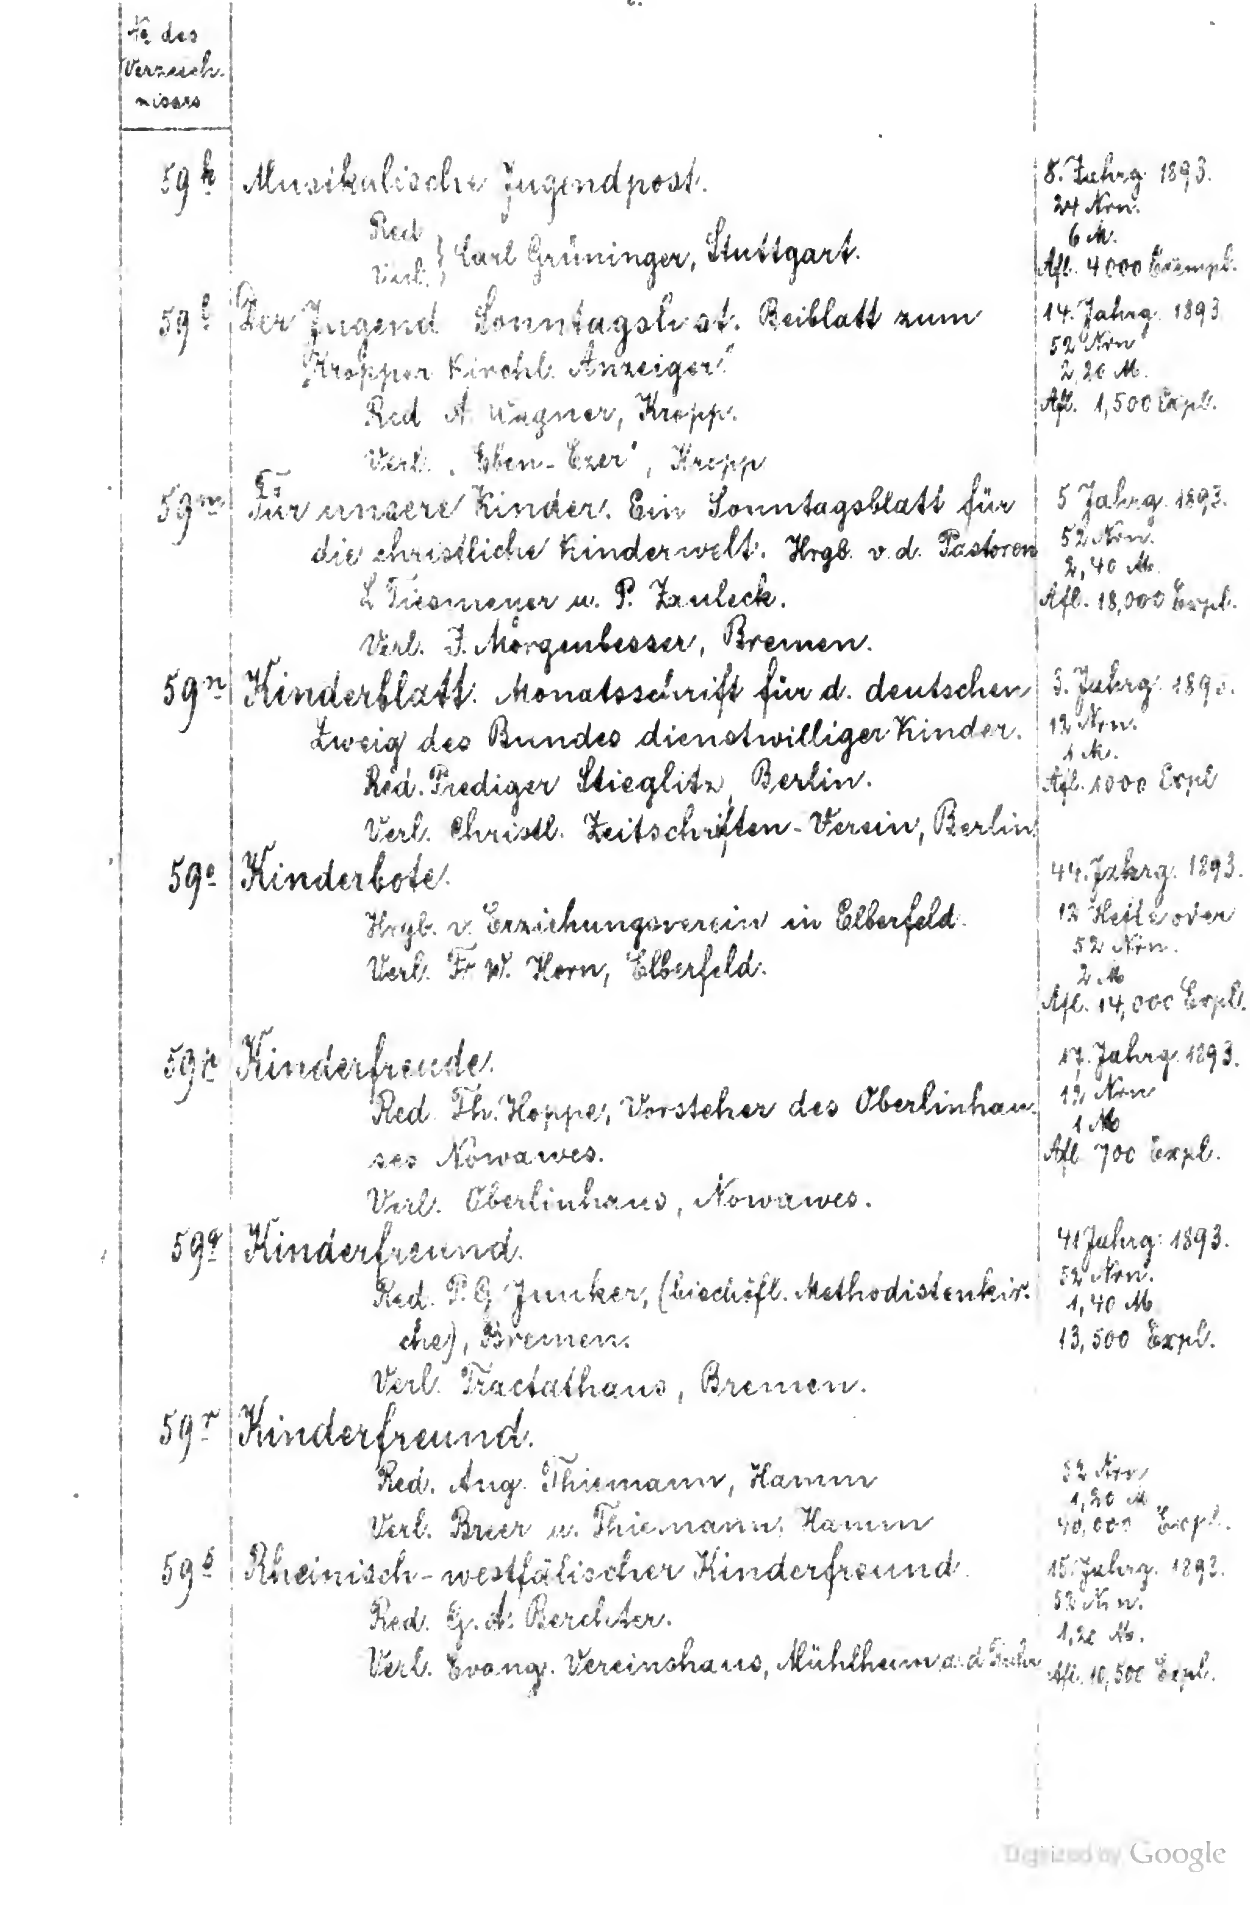 No des
Verzeich-
nisses
59k Musikalische Jugendpost.
Red.
Verl. } Carl Grüninger, Stuttgart.
8. Jahrg. 1893.
24 Nrn.
6 M.
Afl. 4000 Exempl.
59l Der Jugend Sonntagslust. Beiblatt zum
„Kropper Kirchl. Anzeiger“
Red. A. Wagner, Kropp.
Verl. „Eben-Ezer“, Kropp
14. Jahrg. 1893
52 Nrn
2,20 M.
Afl. 1,500 Expl.
59m Für unsere Kinder. Ein Sonntagsblatt für
die christliche Kinderwelt. Hrgb. v. d. Pastoren
L Tiesmeyer u. P. Zauleck.
Verl. J. Morgenbesser, Bremen.
5 Jahrg. 1893.
52 Nrn.
2,40 M.
Afl. 18,000 Expl.
59n Kinderblatt. Monatsschrift für d. deutschen
Zweig des Bundes dienstwilliger Kinder.
Red. Prediger Stieglitz, Berlin.
Verl. Christl. Zeitschriften-Verein, Berlin
3. Jahrg. 1893.
12 Nrn.
1 M.
Afl. 1000 Expl
59o Kinderbote.
Hrgb. v. Erziehungsverein in Elberfeld.
Verl. Fr. W. Horn, Elberfeld.
44. Jahrg. 1893.
12 Hefte oder
52 Nrn.
2 M
Afl. 14,000 Expl.
59p Kinderfreude.
Red. Th. Hoppe, Vorsteher des Oberlinhau-
ses Nowawes.
Verl. Oberlinhaus, Nowawes.
17. Jahrg. 1893.
12 Nrn
1 M
Afl. 700 Expl.
59q Kinderfreund.
Red. P. G. Junker, (bischöfl. Methodistenkir-
che), Bremen.
Verl. Tractathaus, Bremen.
41 Jahrg. 1893.
52 Nrn.
1,40 M
13,500 Expl.
59r Kinderfreund.
Red. Aug. Thiemann, Hamm
Verl. Breer u. Thiemann, Hamm
52 Nrn
1,20 M
40,000 Expl.
59s Rheinisch-westfälischer Kinderfreund.
Red. G. A. Berchter.
Verl. Evang. Vereinshaus, Mühlheim a. d Ruhr
15. Jahrg. 1893.
52 Nrn.
1,20 M.
Afl. 10,500 Expl.
Digitized by Google